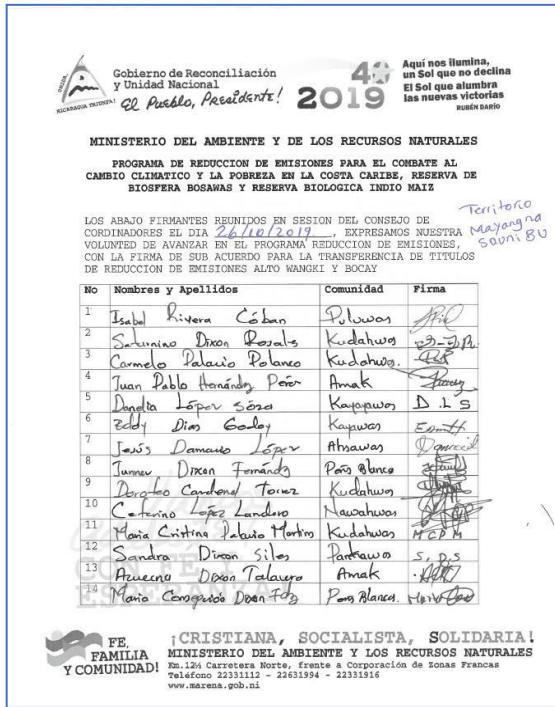 UNIDA,
NICARAGUA TRIUNFA!
Gobierno de Reconciliación
y Unidad Nacional
El Pueblo, Presidente!
40
2019
Aquí nos ilumina,
un Sol que no declina
El Sol que alumbra
las nuevas victorias
RUBÉN DARÍO
MINISTERIO DEL AMBIENTE Y DE LOS RECURSOS NATURALES
PROGRAMA DE REDUCCION DE EMISIONES PARA EL COMBATE AL
CAMBIO CLIMATICO Y LA POBREZA EN LA COSTA CARIBE, RESERVA DE
BIOSFERA BOSAWAS Y RESERVA BIOLOGICA INDIO MAIZ
LOS ABAJO FIRMANTES REUNIDOS EN SESION DEL CONSEJO DE
CORDINADORES EL DIA 26/10/2019, EXPRESAMOS NUESTRA
VOLUNTED DE AVANZAR EN EL PROGRAMA REDUCCION DE EMISIONES,
CON LA FIRMA DE SUB ACUERDO PARA LA TRANSFERENCIA DE TITULOS
DE REDUCCION DE EMISIONES ALTO WANGKI Y BOCAY
Territorio
Mayangna
Sauni BU
No Nombres y Apellidos Comunidad Firma
1 Isabel Rivera Cóban Puluwas
2 Saturnino Dixon Rosales Kudahwas
3 Carmelo Palacio Polanco Kudahwas.
4 Juan Pablo Hernández Pérez Amak
5 Danelia López Sosa Kayayawas D L S
6 Eddy Dias Godoy Kayawas
7 Jesús Damacio López Ahsawas
8 Junnev Dixon Fernández Peñs Blanca
9 Doroteo Cardenal Torrez Kudahwas
10 Ceferino López Landero Nawahwas
11 Maria Cristina Palacio Martins Kudahwas M C P M
12 Sandra Dixon Siles Pankawas S, D, S
13 Azucena Dixon Talavera Amak
14 Maria Dixon Blanca.
FE,
FAMILIA
Y COMUNIDAD!
¡CRISTIANA, SOCIALISTA, SOLIDARIA!
MINISTERIO DEL AMBIENTE Y LOS RECURSOS NATURALES
Km.12½ Carretera Norte, frente a Corporación de Zonas Francas
Teléfono 22331112 - 22631994 - 22331916
www.marena.gob.ni